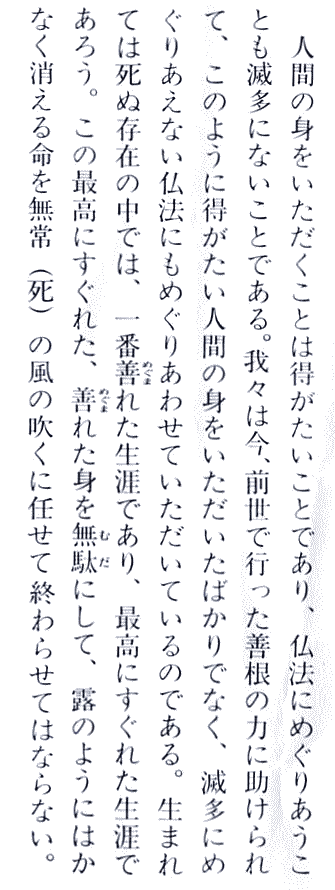 人間の身をいただくことは得がたいことであり、仏法にめぐりあうこ
とも滅多にないことである。我々は今、前世で行った善根の力に助けられ
て、このように得がたい人間の身をいただいたばかりでなく、滅多にめ
ぐりあえない仏法にもめぐりあわせていただいているのである。生まれ
ては死ぬ存在の中では、一番善れた生涯であり、最高にすぐれた生涯で
あろう。この最高にすぐれた、善れた身を無駄にして、露のようにはか
なく消える命を無常（死）の風の吹くに任せて終わらせてはならない。